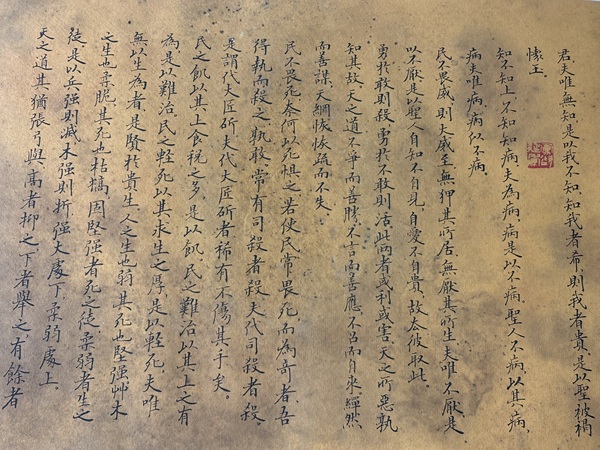 君,夫唯無知,是以我不知,知我者希,則我者貴,是以聖被褐
懷玉
知不知上,不知知病,夫為病,病是以不病,聖人不病,以其病,
病夫唯病病似不病
民不畏威,則大威至,無狎其所居,無厭其所生,夫唯不厭,是
以不厭,是以聖人自知不自見,自愛不自貴,故去彼取此,
勇於敢則殺,勇於不敢則活,此兩者或利或害,天之所惡孰
知其故,天之道不爭而善勝,不言而善應,不召而自來,繟然
而善謀,天綱恢恢,疏而不失,
民不畏死,奈何以死懼之,若使民常畏死,而為奇者,吾
得執而殺之,孰敢,常有司殺者殺,夫代司殺者殺
是謂代大匠斫,夫代大匠斫者稀有不傷其手矣。
民之飢以其上食税之多,是以飢,民之難治以其上之有
為是以難治,民之輕死以其求生之厚,是以輕死,夫唯
無以生為者,是賢於貴生,人之生也弱,其死也堅強,艸木
之生也柔脆,其死也枯槁,固堅強者死之徒,柔弱者生之
徒是以兵強則滅,木強則折,強大處下,柔弱處上,
天之道其猶張弓與,高者抑之,下者舉之,有餘者